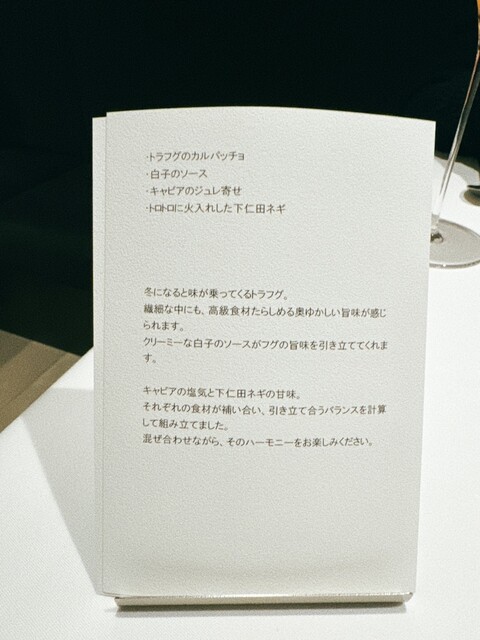 ・トラフグのカルパッチョ
・白子のソース
・キャビアのジュレ寄せ
・トロトロに火入れした下仁田ネギ
冬になると味が乗ってくるトラフグ。
繊細な中にも、高級食材たらしめる奥ゆかしい旨味が感じ
られます。
クリーミーな白子のソースがフグの旨味を引き立ててくれま
す。
キャビアの塩気と下仁田ネギの甘味。
それぞれの食材が補い合い、引き立て合うバランスを計算
して組み立てました。
混ぜ合わせながら、そのハーモニーをお楽しみください。